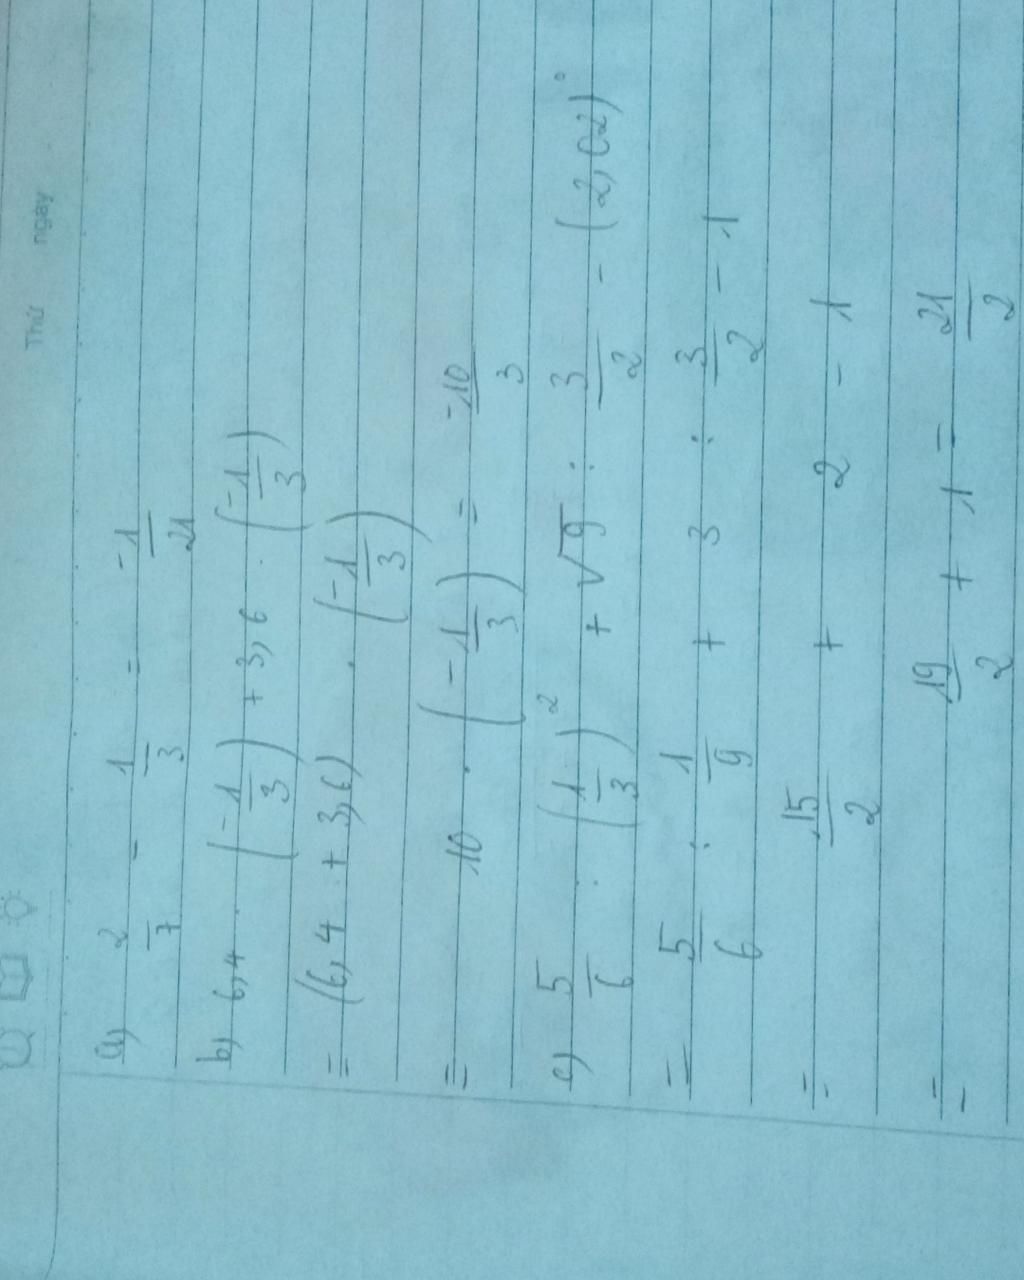 Thứ ngày
a) 2/7 - 1/3 = -1/21
b) 6,4 . (-1/3) + 3,6 . (-1/3)
= (6,4 + 3,6) . (-1/3)
= 10 . (-1/3) = -10/3
c) 5/6 : (1/3)² + √9 : 3/2 - (2,02)⁰
= 5/6 : 1/9 + 3 : 3/2 - 1
= 15/2 + 2 - 1
= 19/2 + 1 = 21/2